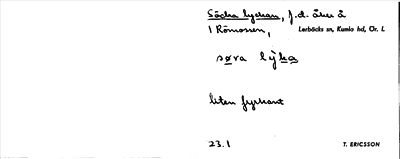 Södra lyckan, f.d. åker å
1 Römossen, Lerbäcks sn, Kumla hd, Ör. l.
søra lỳka
liten fyrkant
23.1 T. ERICSSON